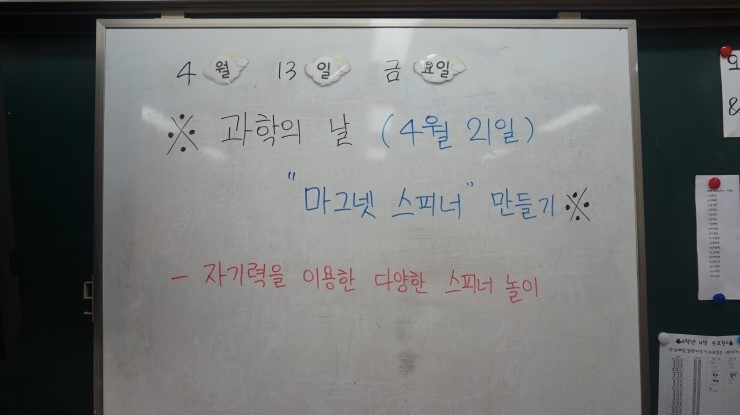 4 월 13 일 금 요일
※ 과학의 날 (4월 21일)
"마그넷 스피너" 만들기 ※
- 자기력을 이용한 다양한 스피너 놀이
&